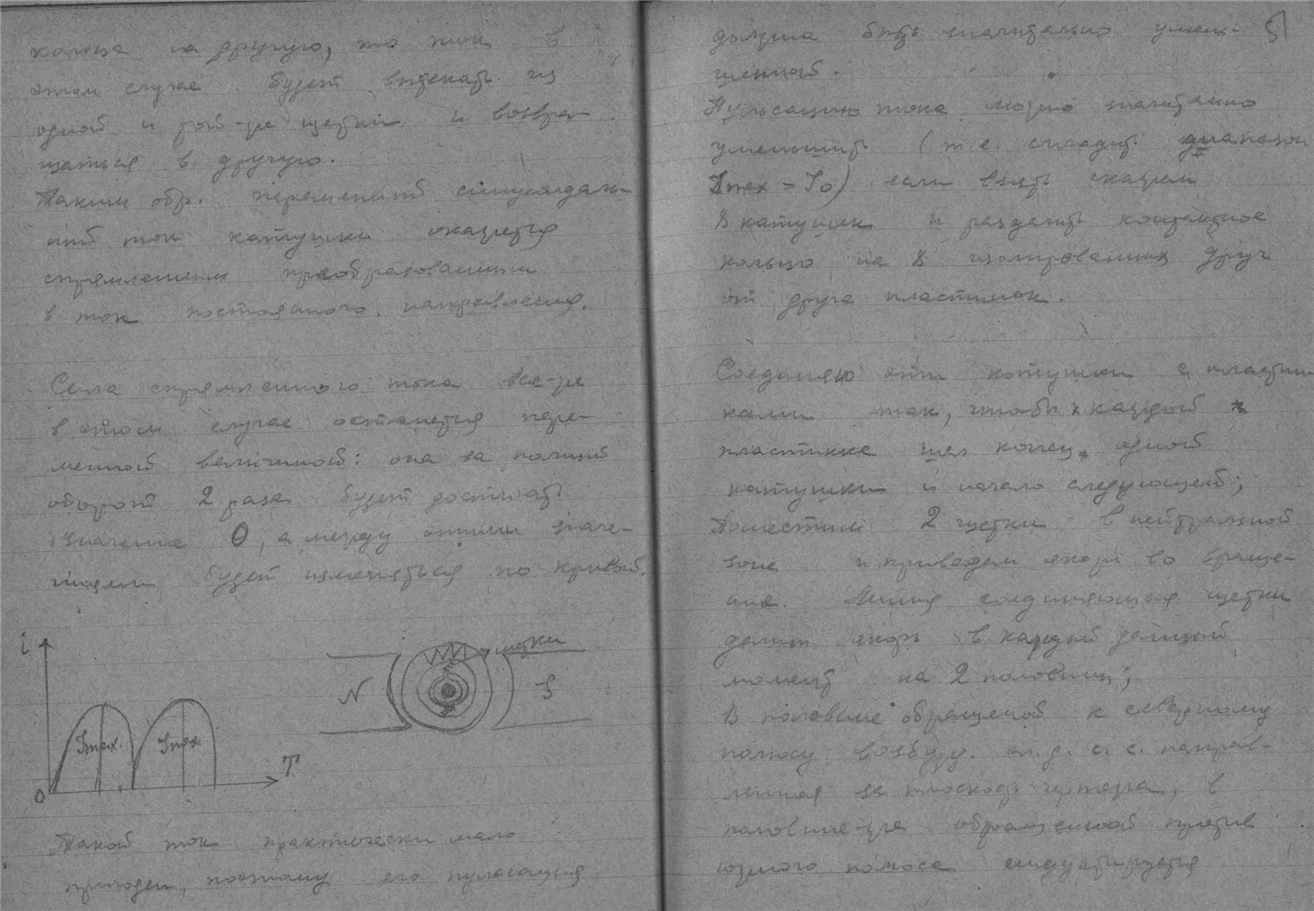 кольца на другую, то ток в
этом случае будет вытекать из
одной и той-же щетки и возвра-
щаться в другую.
Таким обр. переменный синусоидаль-
ный ток катушки окажется
спрямленным преобразованным
в ток постоянного направления.
Сила спрямленного тока все-же
в этом случае останется пере-
менной величиной: она за полный
оборот 2 раза будет достигать
значение 0, а между этими значе-
ниями будет изменяться по кривой.
i
Imax Imax
0 T
щетки
N S
Такой ток практически мало
пригоден, поэтому его пульсация
51
должна быть значительно умень-
шенной.
Пульсацию тока можно значительно
уменьшить (т.е. сгладить диапазон
Imax - I0) если взять скажем
8 катушек и разделить контактное
кольцо на 8 изолированных друг
от друга пластинок.
Соединяю эти катушки с пластин-
ками так, чтобы к каждой
пластинке шел конец одной
катушки и начало следующей;
Поместим 2 щетки в нейтральной
зоне и приведем якорь во враще-
ние. Линия соединяющая щетки
делит якорь в каждый данный
момент на 2 половины;
В половине обращеной к северному
полюсу возбужд. э.д.с. направ-
ленная за плоскость чертежа, в
половине-же обращенной против
южного полюса индуктируется